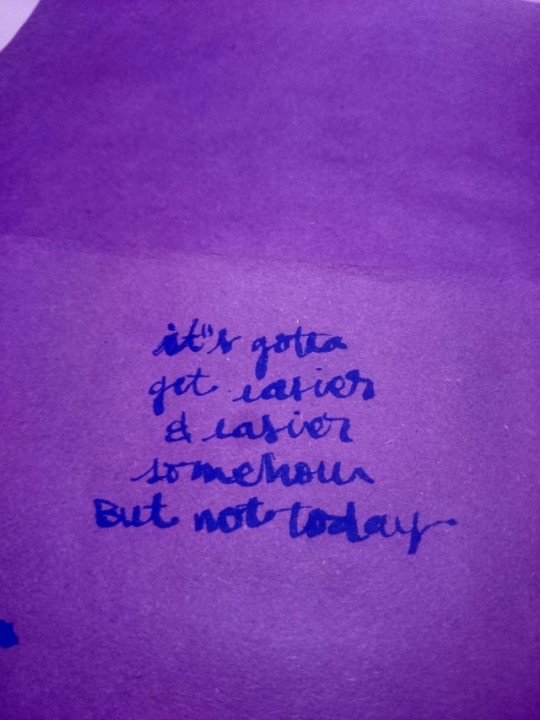 it's gotta
get easier
& easier
somehow
But not today